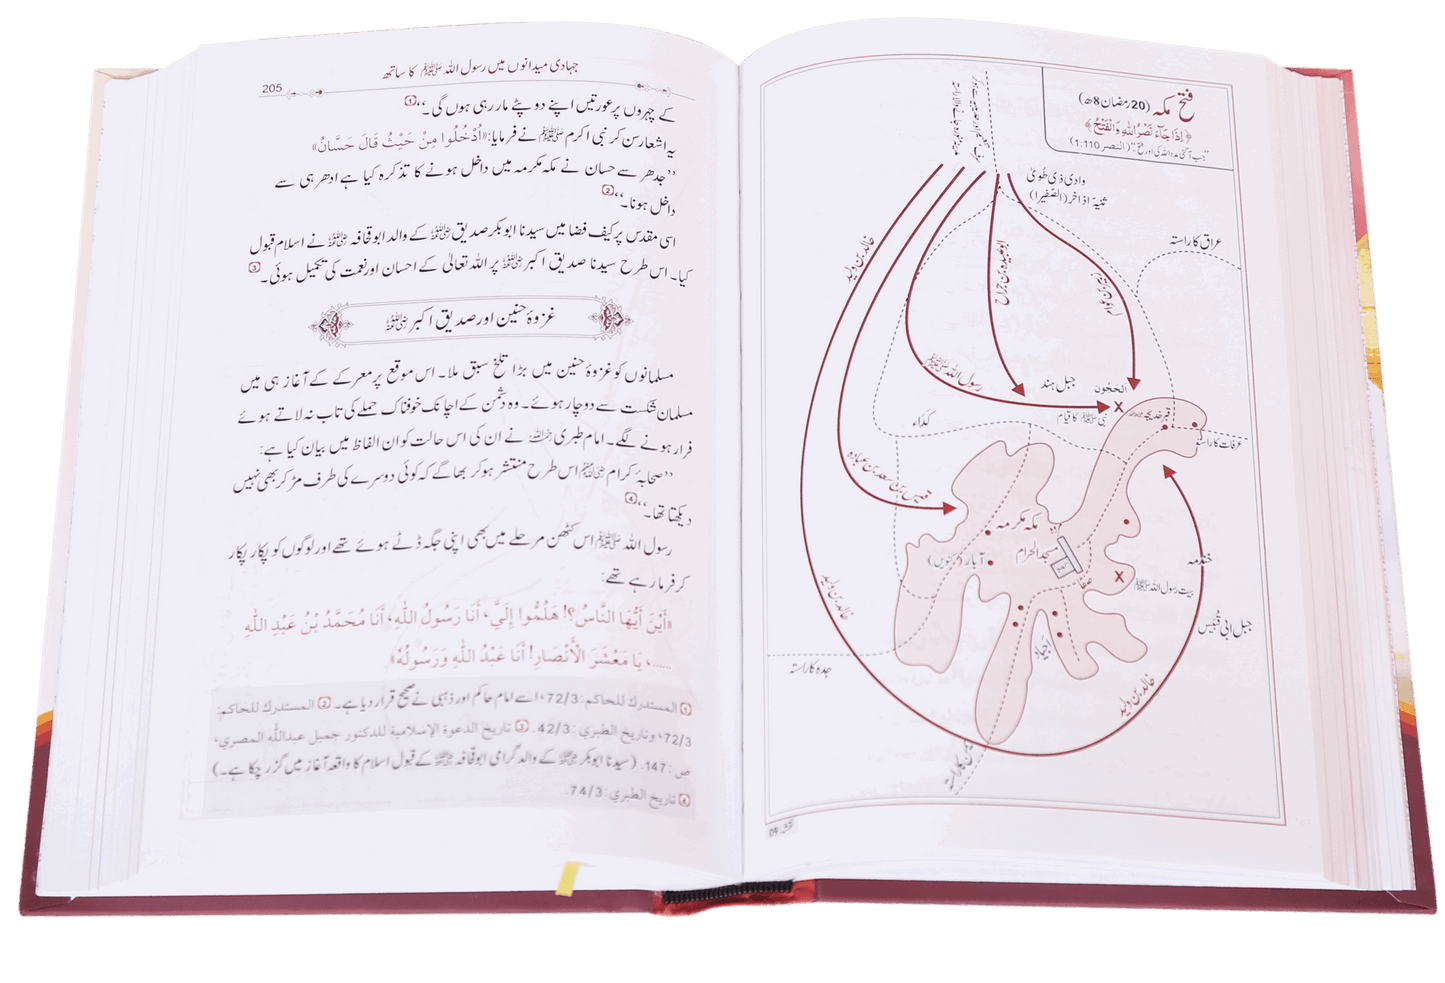 جہادی میدانوں میں رسول اللہ ﷺ کا ساتھ
205
کے چہروں پر عورتیں اپنے دوپٹے مار رہی ہوں گی۔‘‘①
یہ اشعار سن کر نبی اکرم ﷺ نے فرمایا: «اُدْخُلُوا مِنْ حَيْثُ قَالَ حَسَّانُ»
’’جدھر سے حسان نے مکہ مکرمہ میں داخل ہونے کا تذکرہ کیا ہے ادھر ہی سے
داخل ہونا۔‘‘②
اسی مقدس پرکیف فضا میں سیدنا ابوبکر صدیق رضی اللہ عنہ کے والد ابو قحافہ رضی اللہ عنہ نے اسلام قبول
کیا۔ اس طرح سیدنا صدیق اکبر رضی اللہ عنہ پر اللہ تعالیٰ کے احسان اور نعمت کی تکمیل ہوئی۔③
غزوۂ حنین اور صدیق اکبر رضی اللہ عنہ
مسلمانوں کو غزوۂ حنین میں بڑا تلخ سبق ملا۔ اس موقع پر معرکے کے آغاز ہی میں
مسلمان شکست سے دوچار ہوئے۔ وہ دشمن کے اچانک خوفناک حملے کی تاب نہ لاتے ہوئے
فرار ہونے لگے۔ امام طبری رحمہ اللہ نے ان کی اس حالت کو ان الفاظ میں بیان کیا ہے:
’’صحابۂ کرام رضی اللہ عنہم اس طرح منتشر ہو کر بھاگے کہ کوئی دوسرے کی طرف مڑ کر بھی نہیں
دیکھتا تھا۔‘‘④
رسول اللہ ﷺ اس کٹھن مرحلے میں بھی اپنی جگہ ڈٹے ہوئے تھے اور لوگوں کو پکار پکار
کر فرما رہے تھے:
«أَيْنَ أَيُّهَا النَّاسُ؟! هَلُمُّوا إِلَيَّ، أَنَا رَسُولُ اللّٰهِ، أَنَا مُحَمَّدُ بْنُ عَبْدِ اللّٰهِ
.....، يَا مَعْشَرَ الْأَنْصَارِ! أَنَا عَبْدُ اللّٰهِ وَرَسُولُهُ»
① المستدرك للحاكم: 72/3، اسے امام حاکم اور ذہبی نے صحیح قرار دیا ہے۔ ② المستدرك للحاكم:
72/3، وتاريخ الطبري: 42/3. ③ تاريخ الدعوة الإسلامية للدكتور جميل عبدالله المصري،
ص: 147. (سیدنا ابوبکر رضی اللہ عنہ کے والد گرامی ابو قحافہ رضی اللہ عنہ کے قبول اسلام کا واقعہ آغاز میں گزر چکا ہے۔)
④ تاريخ الطبري: 74/3.
فتح مکہ (20 رمضان 8ھ)
﴿اِذَا جَآءَ نَصْرُ اللّٰهِ وَالْفَتْحُ﴾
’’جب آ گئی مدد اللہ کی اور فتح۔‘‘ (النصر 1:110)
وادی ذی طویٰ
ثنیۃ اذاخر (الصفیرا)
عراق کا راستہ
خالد بن ولید
ابوعبیدہ بن جراح
زبیر بن عوام
رسول اللہ ﷺ
جبل ہند
الحجون
X
نبی ﷺ کا قیام
قبر خدیجہ
عرفات کا راستہ
کَدَاء
قیس بن سعد بن عبادہ
مکہ مکرمہ
مسجد الحرام
آبار (کنویں)
صفا
خندمہ
X
بیت رسول اللہ ﷺ
جبل ابی قُبَیس
اجیاد
خالد بن ولید
جدہ کا راستہ
خالد بن ولید
یمن کا راستہ
نقشہ 09